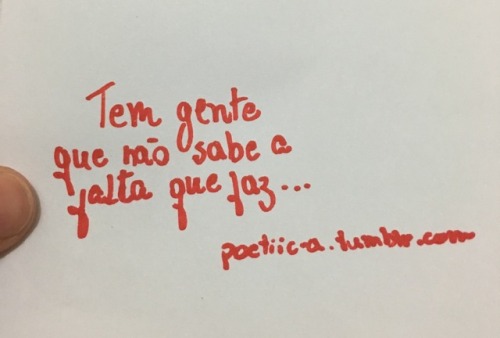 Tem gente
que não sabe a
falta que faz...
poetiic-a.tumblr.com